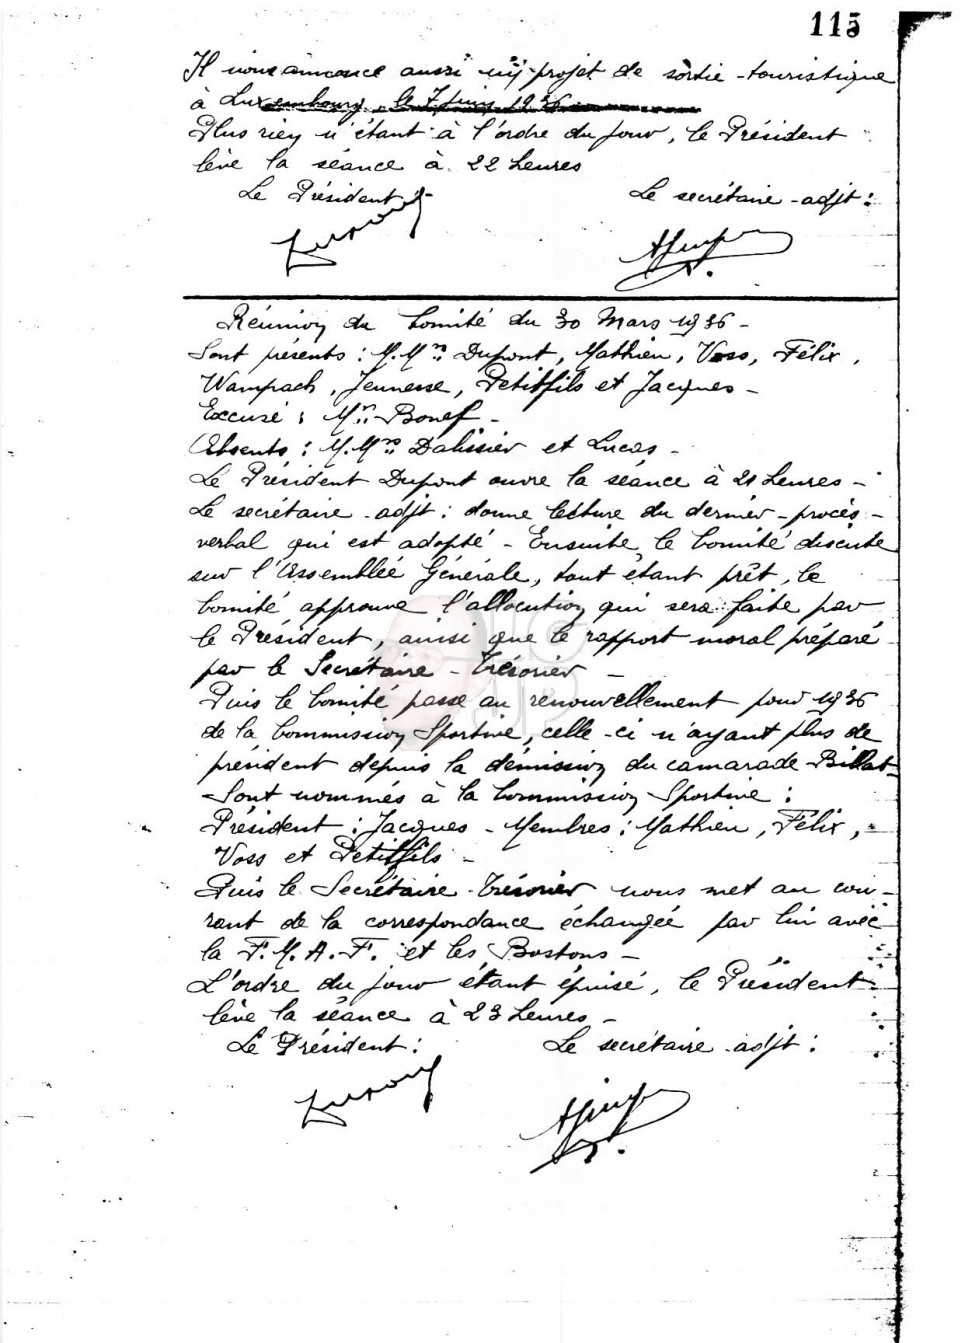 115
Il nous annonce aussi un projet de sortie-touristique
à Luxembourg, le 7 Juin 1936
Plus rien n'étant à l'ordre du jour, le Président
lève la séance à 22 heures
Le Président Le secrétaire-adjt :
Réunion du Comité du 30 Mars 1936 -
Sont présents : M.Mrs Dupont, Mathieu, Voss, Félix,
Wampach, Jeunesse, Petitfils et Jacques -
Excusé : Mr Bonef -
Absents : M.Mrs Dalissier et Lucas -
Le Président Dupont ouvre la séance à 21 heures -
Le secrétaire-adjt : donne lecture du dernier-procès-
verbal qui est adopté - Ensuite, le Comité discute
sur l'Assemblée Générale, tout étant prêt, le
Comité approuve l'allocution qui sera faite par
le Président, ainsi que le rapport moral préparé
par le Secrétaire-Trésorier -
Puis le Comité passe au renouvellement pour 1936
de la Commission Sportive, celle-ci n'ayant plus de
président depuis la démission du camarade Billat-
Sont nommés à la Commission Sportive :
Président : Jacques - Membres : Mathieu, Félix,
Voss et Petitfils -
Puis le Secrétaire-Trésorier nous met au cou-
rant de la correspondance échangée par lui avec
la F.M.A.F. et les Bostons -
L'ordre du jour étant épuisé, le Président
lève la séance à 23 heures -
Le Président : Le secrétaire-adjt :